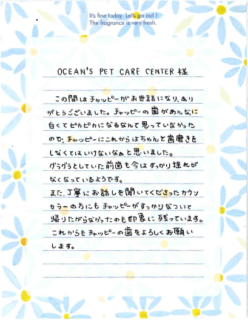 It's fine today. Let's go out!
The fragrance is very fresh.
OCEAN'S PET CARE CENTER 様
この間はチャッピーがお世話になり、あり
がとうございました。チャッピーの歯があんなに
白くてピカピカになるなんて思っていなかった
ので、チャッピーにこれからはちゃんと歯磨きを
しなくてはいけないなぁと思いました。
グラグラとしていた前歯も今はすっかり揺れが
なくなっているようです。
また、丁寧にお話しを聞いてくださったカウン
セラーの方にもチャッピーがすっかりなついて
帰りたがらなかったのも印象に残っています。
これからもチャッピーの歯をよろしくお願い
します。